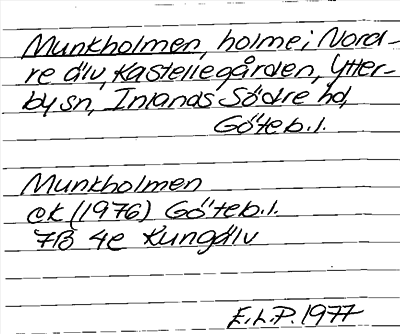 Munkholmen, holme i Nord-
re älv, Kastellegården, Ytter-
by sn, Inlands Södre hd,
Göteb. l.
Munkholmen
ek (1976) Göteb. l.
7B 4e Kungälv
E.L.P. 1977